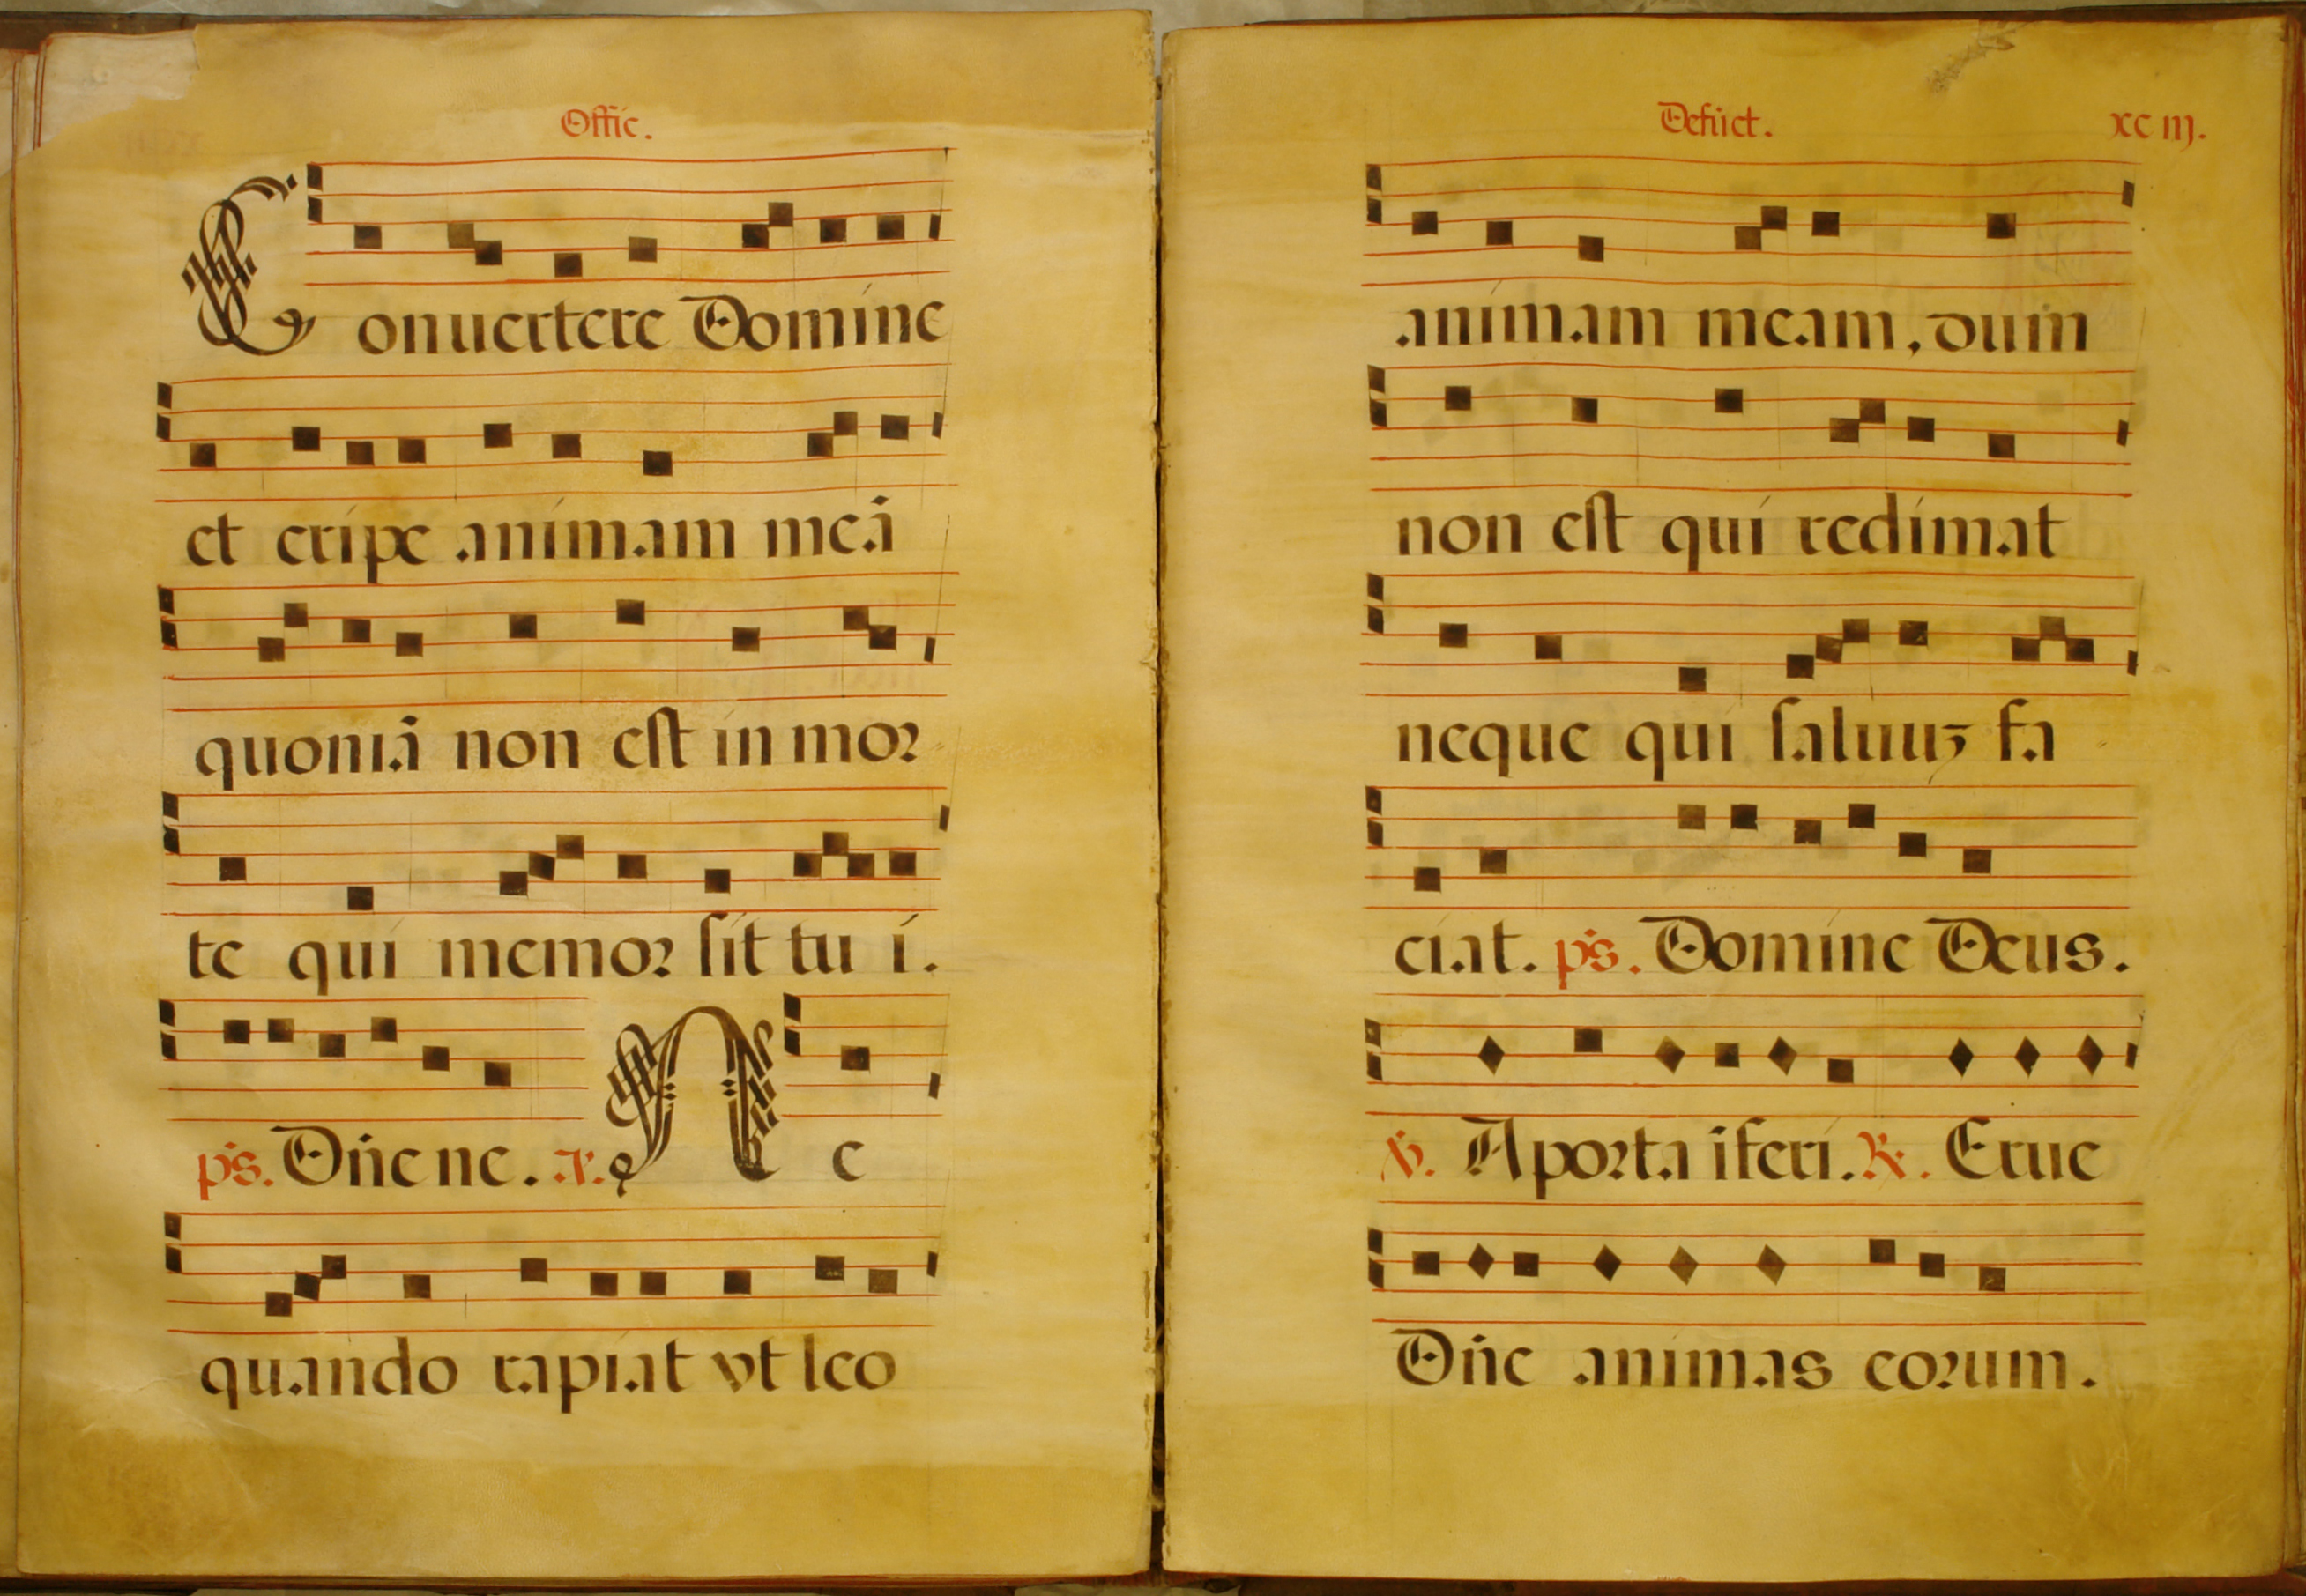 Offic.
Conuertere Domine
et eripe animam meā
quoniā non est in mor
te qui memor sit tu i.
ps. Dñe ne. a. Ne
quando rapiat vt leo
Defūct. xciij.
animam meam, dum
non est qui redimat
neque qui saluuʒ fa
ciat. ps. Domine Deus.
℣. A porta iferi. ℟. Erue
Dñe animas eorum.